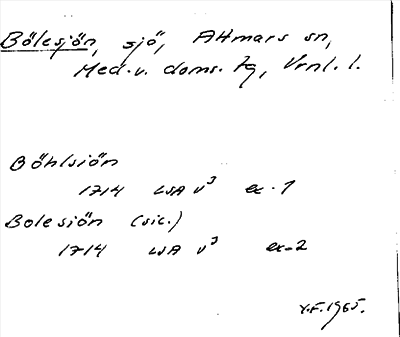 Bölesjön, sjö, Attmars sn,
Med.v. doms. tg, Vrnl. l.
Böhlsiön
1714 LSA v³ ex. 1
Bolesiön (sic.)
1714 LSA v³ ex. 2
Y.F. 1965.